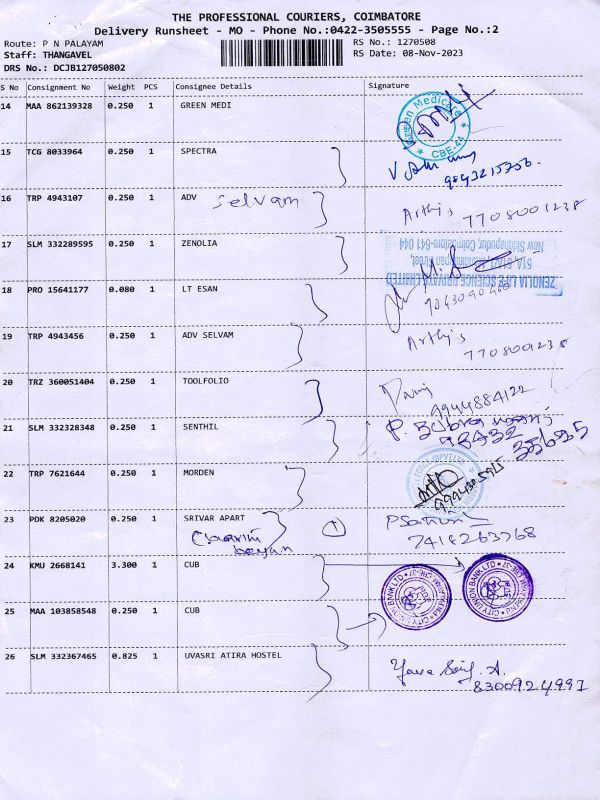 THE PROFESSIONAL COURIERS, COIMBATORE
Delivery Runsheet - MO - Phone No.:0422-3505555 - Page No.:2
Route: P N PALAYAM RS No.: 1270508
Staff: THANGAVEL RS Date: 08-Nov-2023
DRS No.: DCJB127050802
S No Consignment No Weight PCS Consignee Details Signature
14 MAA 862139328 0.250 1 GREEN MEDI
Green Medicare
CBE-44
15 TCG 8033964 0.250 1 SPECTRA
9843215756.
16 TRP 4943107 0.250 1 ADV Selvam Arthy's
7708001238
17 SLM 332289595 0.250 1 ZENOLIA
ZENOLIA LIFE SCIENCE PRIVATE LIMITED
New Siddhapudur, Coimbatore-641 044
18 PRO 15641177 0.080 1 LT ESAN
19 TRP 4943456 0.250 1 ADV SELVAM Arthy's
7708001238
20 TRZ 360051404 0.250 1 TOOLFOLIO
9944884122
21 SLM 332328348 0.250 1 SENTHIL
22 TRP 7621644 0.250 1 MORDEN
23 PDK 8205020 0.250 1 SRIVAR APART 1
7418263768
24 KMU 2668141 3.300 1 CUB
CITY UNION BANK LTD
CITY UNION BANK LTD
25 MAA 103858548 0.250 1 CUB
26 SLM 332367465 0.825 1 UVASRI ATIRA HOSTEL
8300924991